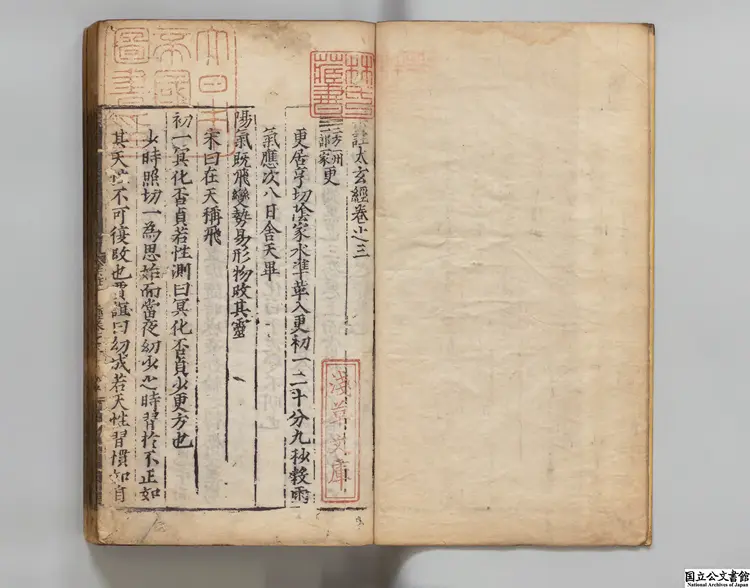 林氏藏書
大日本帝國圖書印
註太玄經卷之三
更
更居孟切陰家水準革入更初一二十分九秒穀雨
氣應次八日舍天畢
陽氣既飛變勢易形物改其靈
宋曰在天稱飛
初一冥化否貞若性測曰冥化否貞少更方也
少時照切一為思始而當夜幼少之時習於不正如
其天性不可復改也賈誼曰幼成若天性習慣如自
淺草文庫
国立公文書館
National Archives of Japan